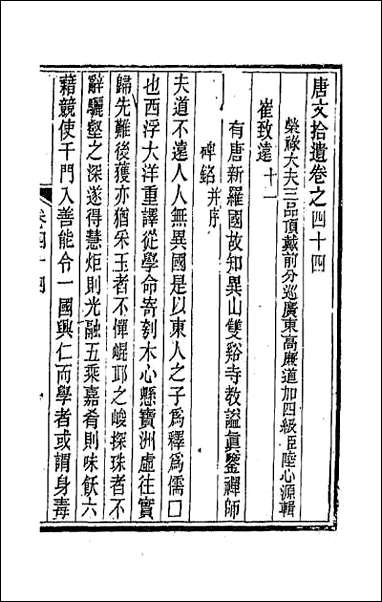 唐文拾遺卷之四十四
榮祿大夫三品頂戴前分巡廣東高廉道加四級臣陸心源輯
崔致遠十一
有唐新羅國故知異山雙谿寺教謚眞鑒禪師
碑銘并序
夫道不遠人人無異國是以東人之子爲釋爲儒□
也西浮大洋重譯從學命寄刳木心懸寶洲虛往實
歸先難後獲亦猶采玉者不憚崐邱之峻探珠者不
辭驪壑之深遂得慧炬則光融五乘嘉肴則味飫六
藉競使千門入善能令一國興仁而學者或謂身毒
卷四十四